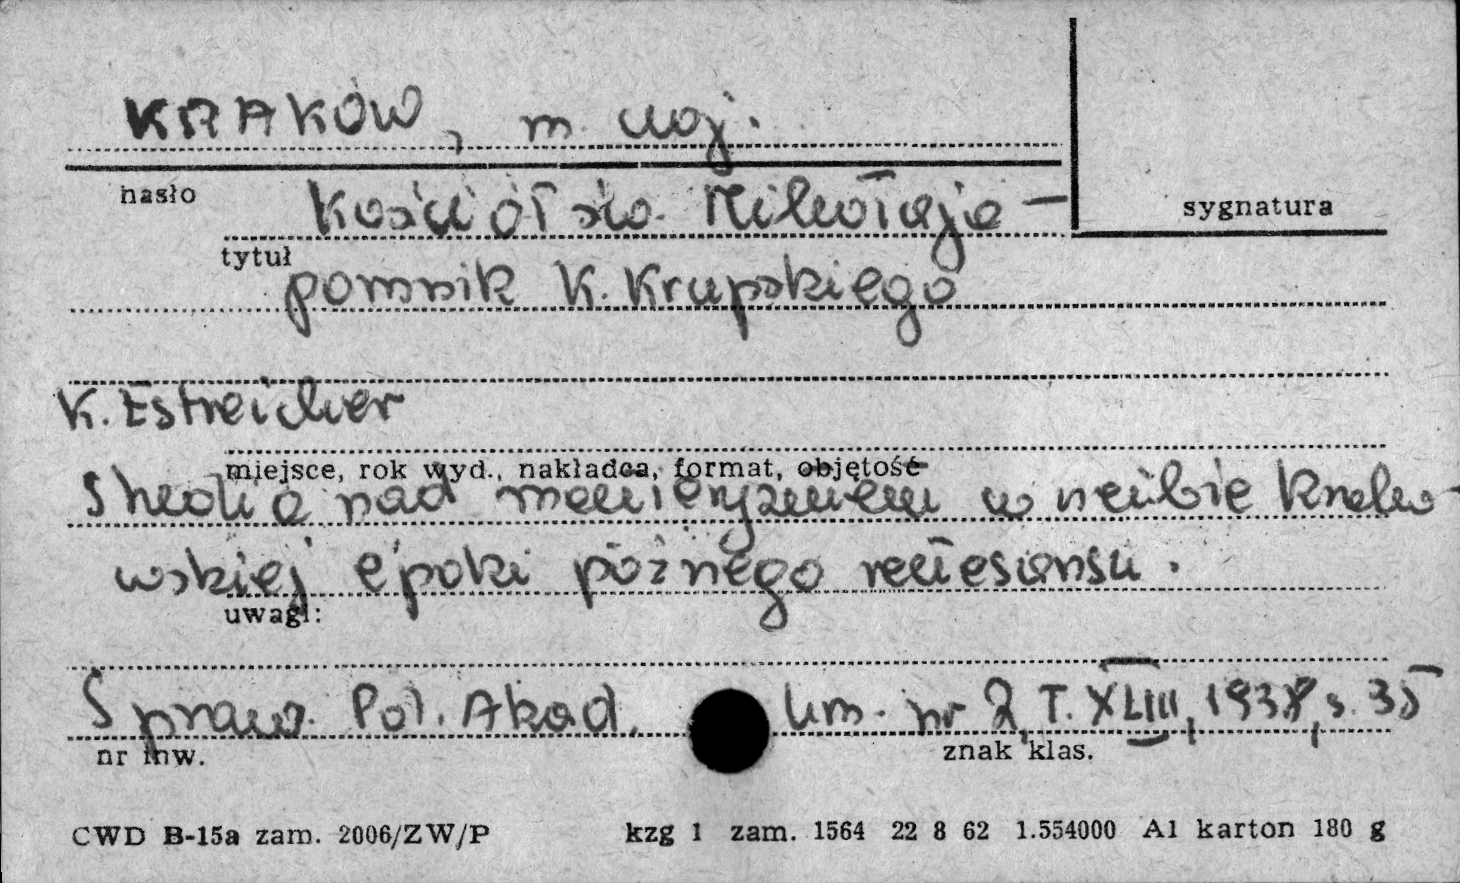 KRAKÓW, m. woj.
hasło
sygnatura
Kościół św. Mikołaja –
tytuł
pomnik K. Krupskiego
K. Estreicher
miejsce, rok wyd., nakładca, format, objętość
Studia nad manieryzmem w rzeźbie krako-
wskiej epoki późnego renesansu.
uwagi:
Spraw. Pol. Akad. Um. nr 2, T. XLIII, 1938, s. 35
nr inw.
znak klas.
CWD B-15a zam. 2006/ZW/P kzg 1 zam. 1564 22 8 62 1.554000 A1 karton 180 g